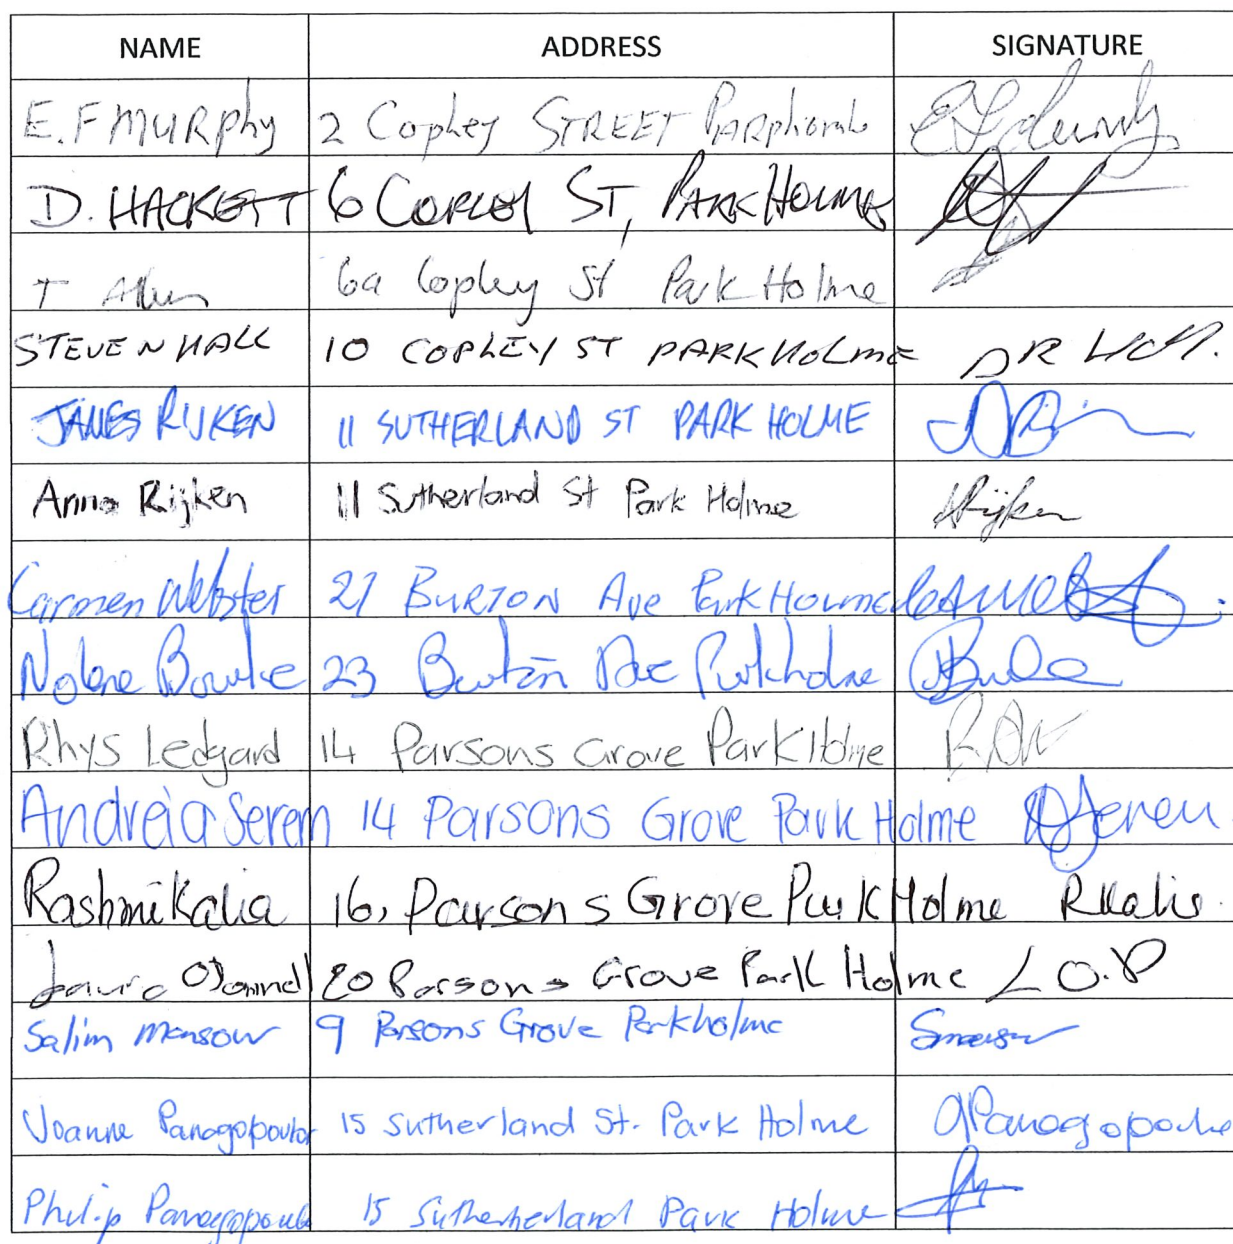 NAME ADDRESS SIGNATURE
E.F MURPhy 2 Copley STREET
D. HACKETT 6 COPLEY ST, PARK HOLME
T Allen 6a Copley St Park Holme
STEVEN HALL 10 COPLEY ST PARKHOLME
JAMES RIJKEN 11 SUTHERLAND ST PARK HOLME
Anna Rijken 11 Sutherland St Park Holme ARijken
Carmen Webster 27 BURTON Ave Park Holme
Nolene Bourke 23 Burton Ave Parkholme
Rhys Ledgard 14 Parsons Grove Park Holme
Andreia Serem 14 Parsons Grove Park Holme
Rashmi Kalia 16, Parsons Grove Park Holme RKalia
Laura O'Donnell 20 Parsons Grove Park Holme L O.D
Salim Mansour 9 Parsons Grove Parkholme
Joanne Panagopoulos 15 Sutherland St. Park Holme
Philip Panagopoulos 15 Sutherherland Park Holme